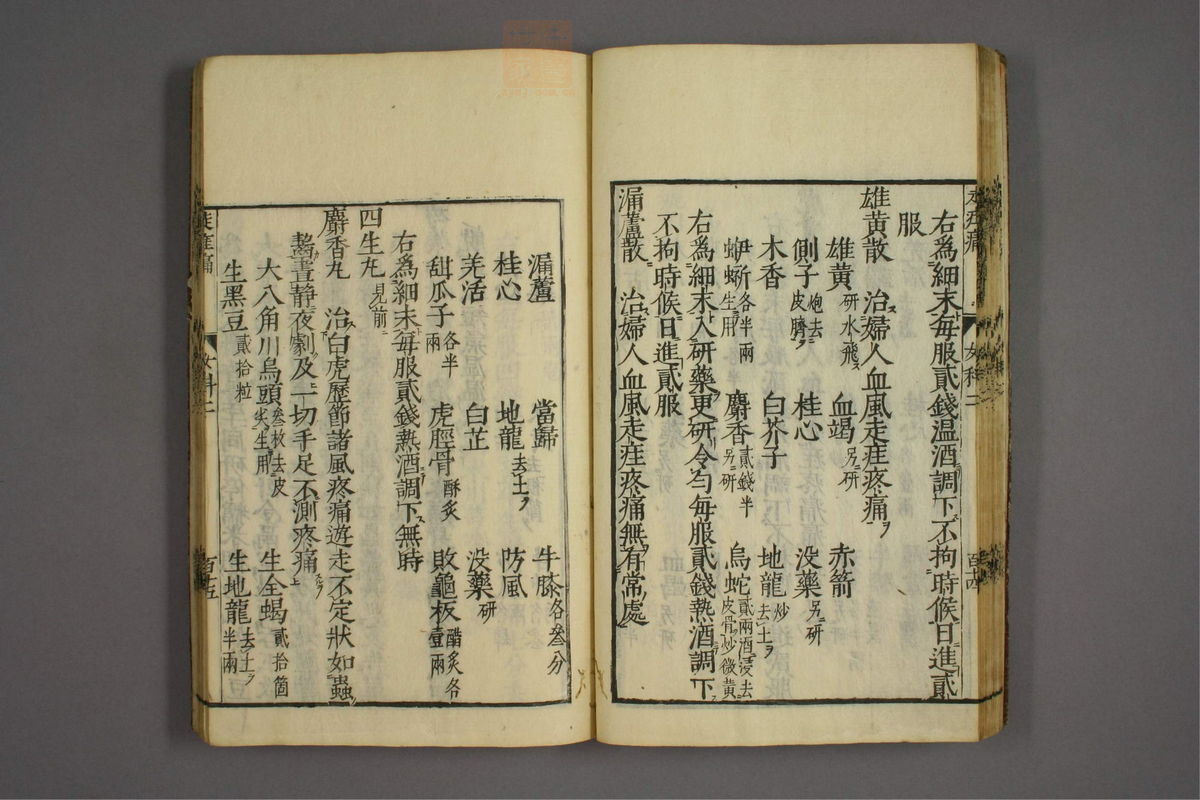 右爲細末毎服貳錢温酒調下不拘時候日進貳
服
雄黄散 治婦人血風走疰疼痛ヲ
雄黄研水飛ス 血竭另ニ研 赤箭
側子炮去皮臍ヲ 桂心 没藥另ニ研
木香 白芥子 地龍炒去土ヲ
蚵蚾各半兩生用 麝香貳錢半另ニ研 烏蛇貳兩酒浸去皮骨炒微黄
右爲細末入研藥更研令匀毎服貳錢熱酒調下
不拘時候日進貳服
漏蘆散 治婦人血風走疰疼痛無有常處
女科二
百十四
漏蘆 當歸 牛膝各叄分
桂心 地龍去土ヲ 防風
羌活 白芷 没藥研
甜瓜子各半兩 虎脛骨酥炙 敗龜板醋炙各壹兩
右爲細末毎服貳錢熱酒調下無時
四生丸見前
麝香丸 治白虎歴節諸風疼痛遊走不定狀如蟲
齧晝靜夜劇及一切手足不測疼痛
大八角川烏頭叄枚去皮尖生用 生全蝎貳拾箇
生黑豆貳拾粒 生地龍去土ヲ半兩
女科二
百十五